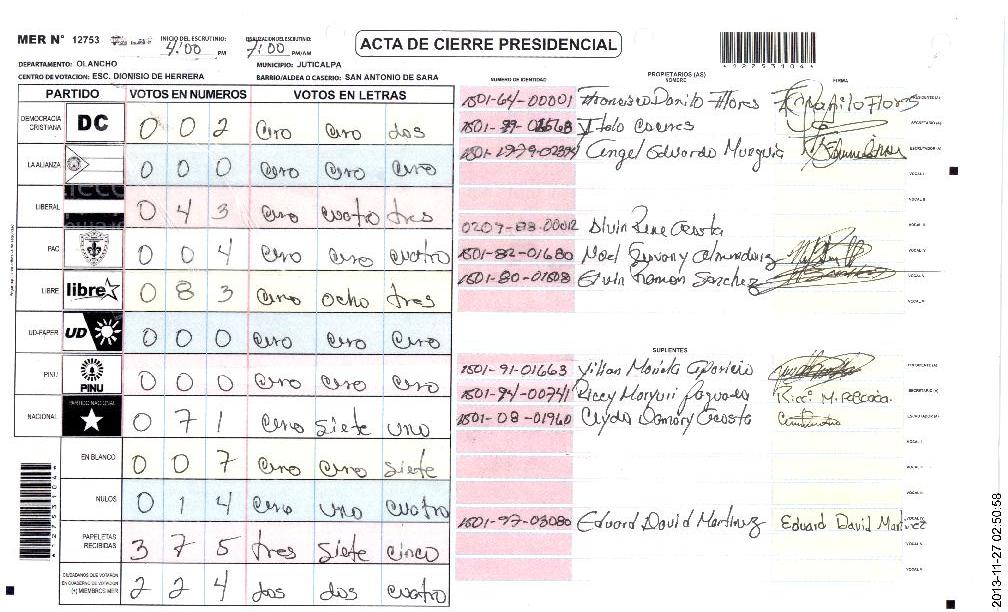 MER N° 12753 INICIO DEL ESCRUTINIO: 4:00 PM FINALIZACION ESCRUTINIO: 7:00 PM/AM
ACTA DE CIERRE PRESIDENCIAL
DEPARTAMENTO: OLANCHO MUNICIPIO: JUTICALPA
CENTRO DE VOTACION: ESC. DIONISIO DE HERRERA BARRIO/ALDEA O CASERIO: SAN ANTONIO DE SARA
PARTIDO VOTOS EN NUMEROS VOTOS EN LETRAS
DEMOCRACIA CRISTIANA DC 0 0 2 cero cero dos
LA ALIANZA 0 0 0 cero cero cero
LIBERAL 0 4 3 cero cuatro tres
PAC 0 0 4 cero cero cuatro
LIBRE libre 0 8 3 cero ocho tres
UD-FAPER UD 0 0 0 cero cero cero
PINU PINU 0 0 0 cero cero cero
NACIONAL PARTIDO NACIONAL 0 7 1 cero siete uno
EN BLANCO 0 0 7 cero cero siete
NULOS 0 1 4 cero uno cuatro
PAPELETAS RECIBIDAS 3 7 5 tres siete cinco
CIUDADANOS QUE VOTARON EN CUADERNO DE VOTACION (+) MIEMBROS MER 2 2 4 dos dos cuatro
PROPIETARIOS (AS)
NUMERO DE IDENTIDAD NOMBRE FIRMA
1501-64-00001 Francisco Danilo Flores Danilo Flores PRESIDENTE (A)
Italo SECRETARIO (A)
1501-1979-02394 Angel Eduardo Murguia ESCRUTADOR (A)
VOCAL I
VOCAL II
0209-88-00012 Alvin Rene Acosta VOCAL III
1501-82-01680 Noel VOCAL IV
1501-80-01608 Ervin Ramon Sanchez VOCAL V
VOCAL VI
SUPLENTES
1501-91-01663 Vilian Mariela Aparicio PRESIDENTE (A)
1501-94-00741 SECRETARIO (A)
1501-08-01960 Clyde Damary Acosta ESCRUTADOR (A)
VOCAL I
VOCAL II
VOCAL III
1501-97-03080 Eduard David Martinez Eduard David Martinez VOCAL IV
VOCAL V
VOCAL VI
2013-11-27 02:50:58